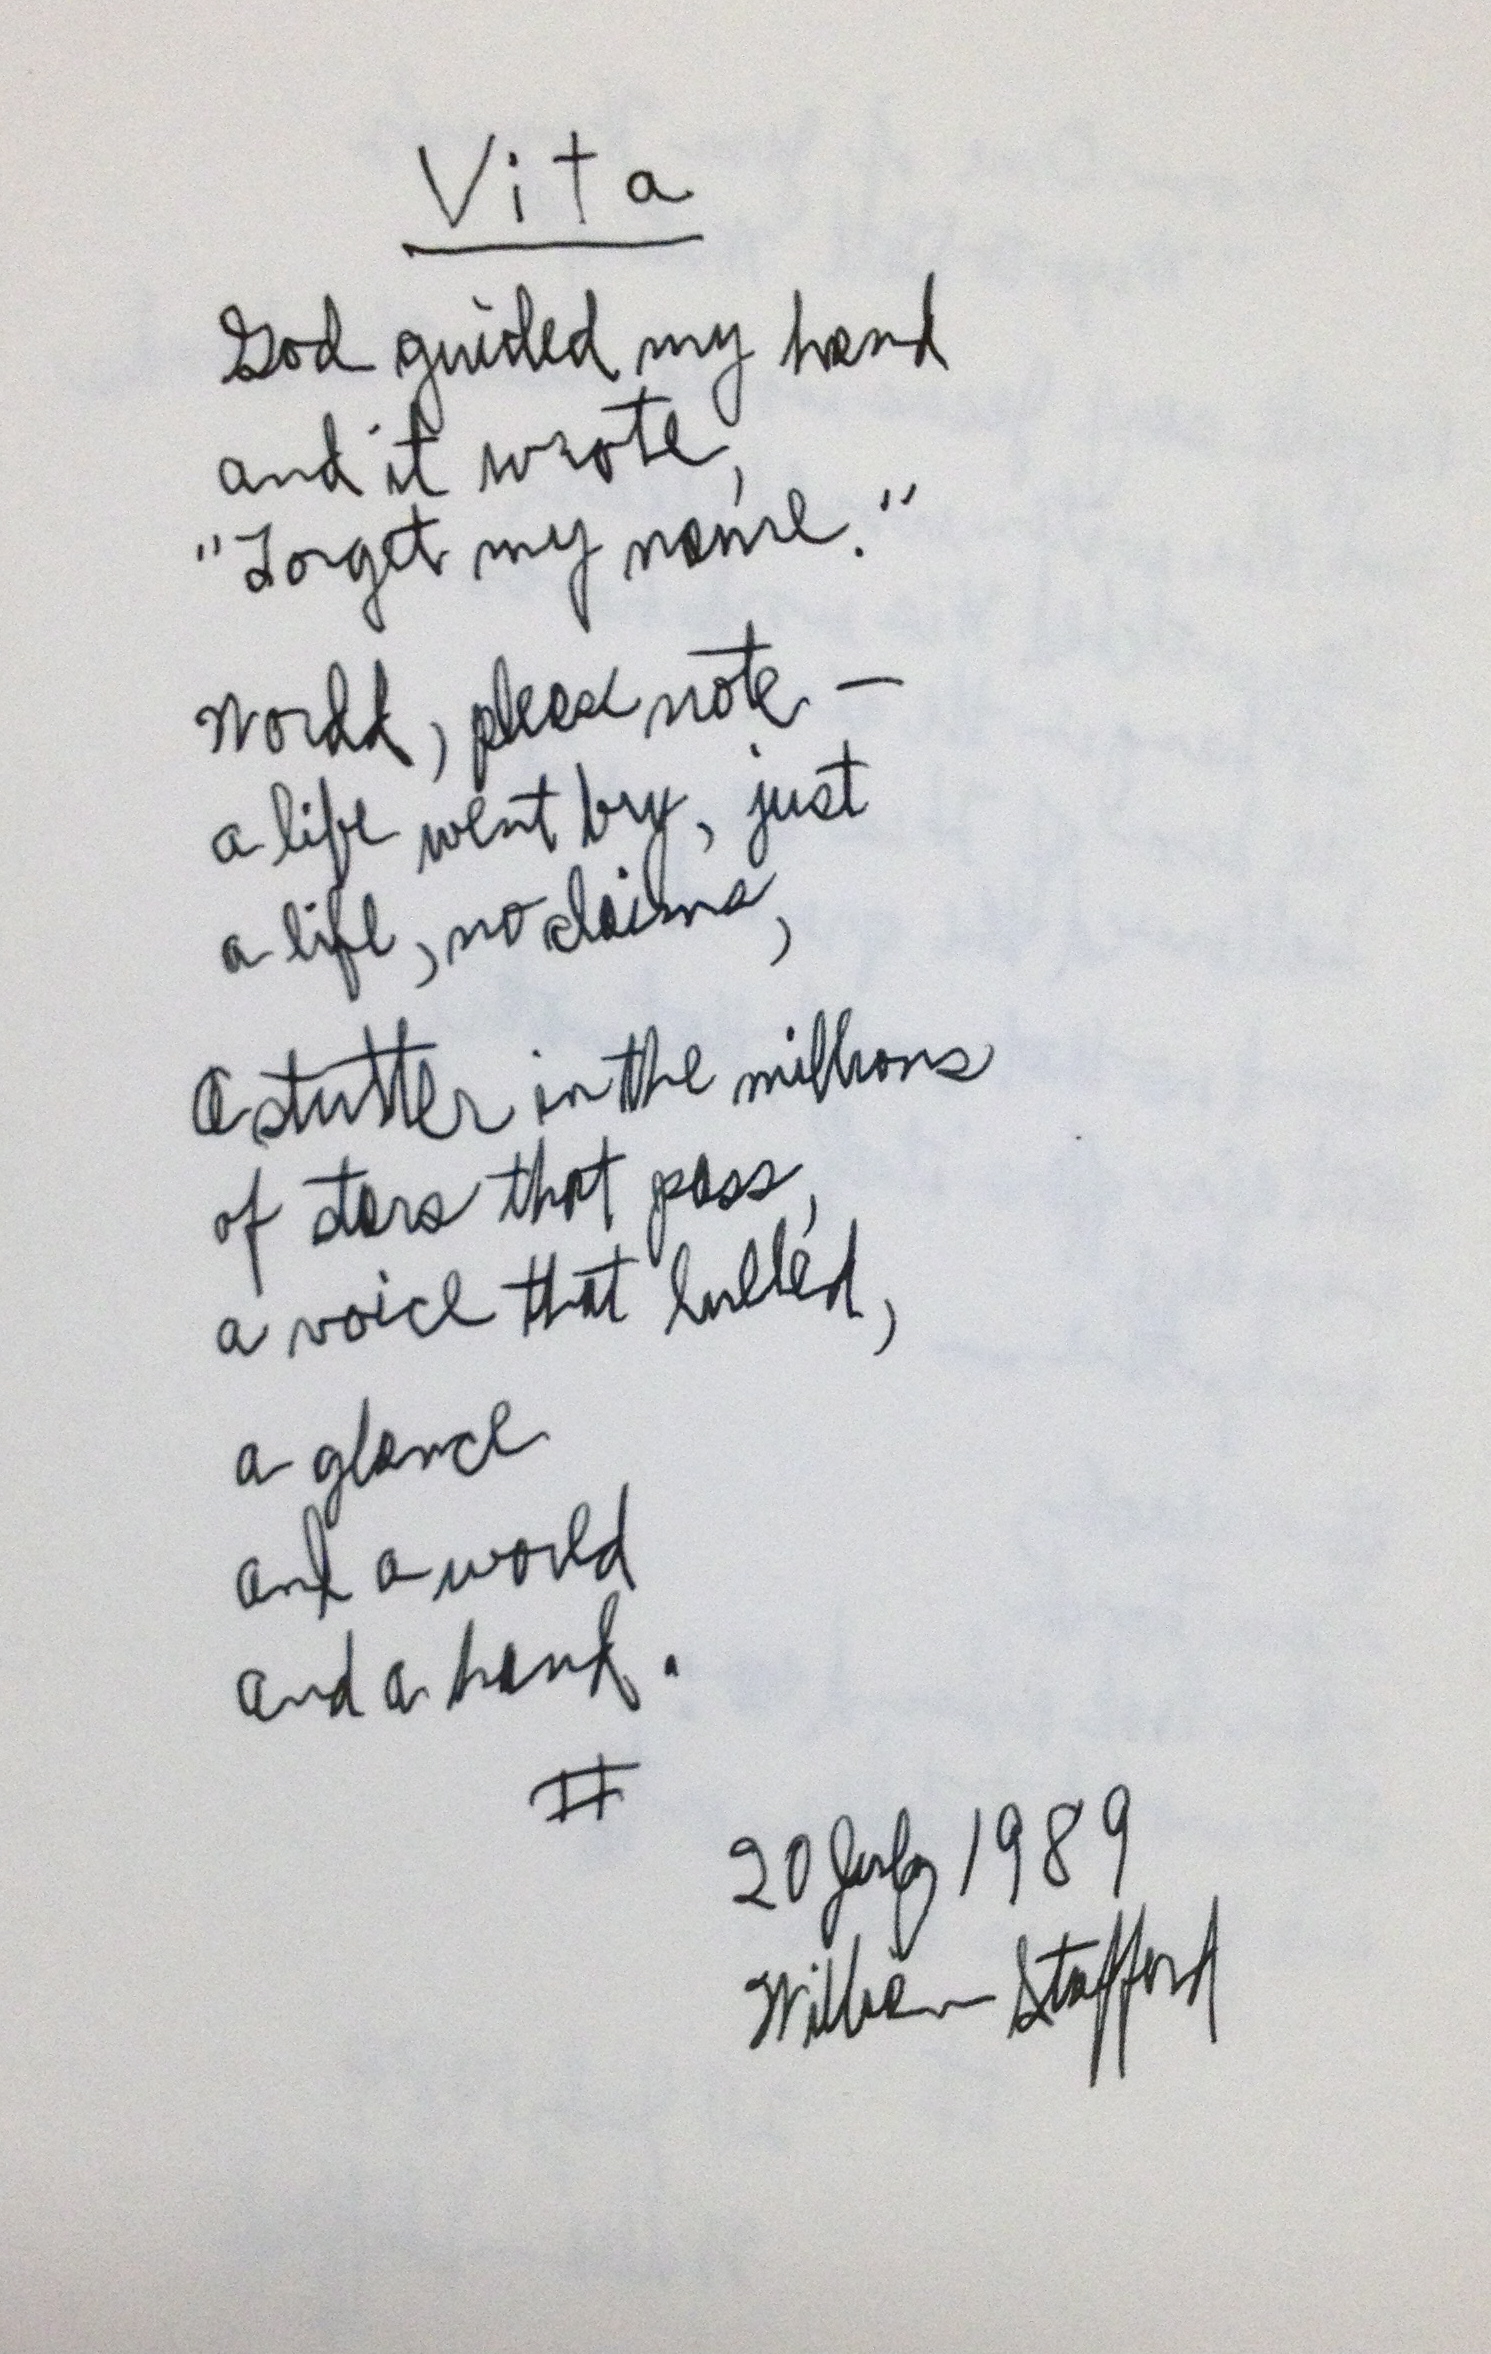 Vita
God guided my hand
and it wrote,
"Forget my name."
World, please note —
a life went by, just
a life, no claims,
A stutter in the millions
of stars that pass,
a voice that lulled,
a glance
and a world
and a hand.
#
20 July 1989
William Stafford